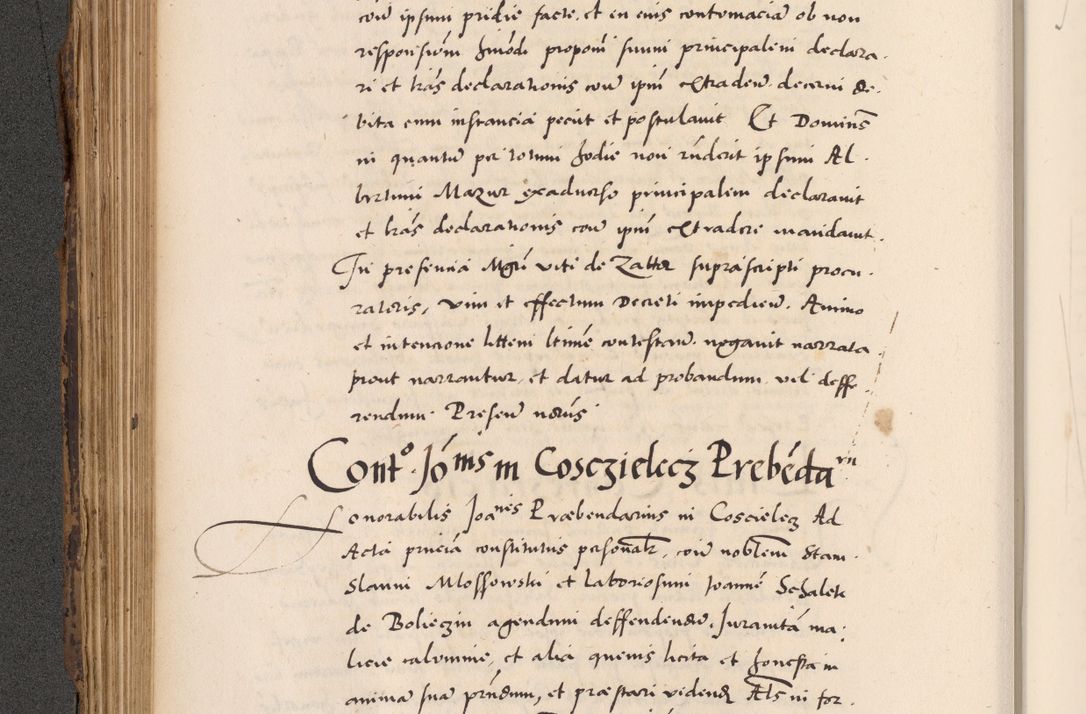 cow ipsum pridie facte, et in eius contumaciã ob non
responsionẽ hmõi proponi suum principalem declara-
ri et lras declarationis cow ipm extradew decerni de-
bita cum instancia peciit et postulavit Et Domins
in quantũ per totum hodie non ruderit ipsum Al-
bertum Mazur exadverso principalem declaravit
et lras declarationis cow ipm extradere mandavit.
In presencia Mgri viti de Zator suprascripti procu-
ratoris, vim et effectum Decreti impediew. Animo
et intencione littem ltime contestaw. negavit narrata
prout narrantur, et datur ad probandum vel deffe-
rendum. Presew notus
Contº. Joms in Cosczielecz Prebẽdarii
Honorabilis Joanes Præbendarius in Coscielecz Ad
Acta pñcia constitutus personalr, cow noblem Stani-
slaum Mlossowski et laboriosum Joannẽ Schalek
de Bolieczin agendum deffendendũ. Juramtã ma-
licie calumnie, et alia quevis licita et honesta in
animã suã prñdum, et præstari videnđ Als in for-